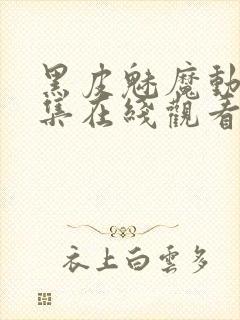 黑皮魅魔動
集在綫觀看
衣上白雲多